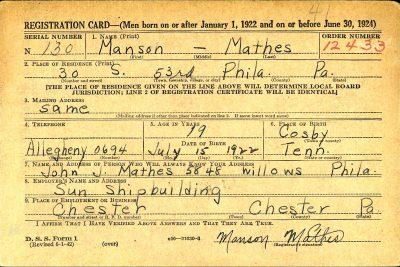 REGISTRATION CARD—(Men born on or after January 1, 1922 and on or before June 30, 1924)
SERIAL NUMBER 1. NAME (Print) ORDER NUMBER
N 130 Manson — Mathes 12433
(First) (Middle) (Last)
2. PLACE OF RESIDENCE (Print)
30 S. 53rd Phila. Pa.
(Number and street) (Town, township, village, or city) (County) (State)
[THE PLACE OF RESIDENCE GIVEN ON THE LINE ABOVE WILL DETERMINE LOCAL BOARD
JURISDICTION; LINE 2 OF REGISTRATION CERTIFICATE WILL BE IDENTICAL]
3. MAILING ADDRESS
same
(Mailing address if other than place indicated on line 2. If same insert word same)
4. TELEPHONE 5. AGE IN YEARS 6. PLACE OF BIRTH
19 Cosby
DATE OF BIRTH (Town or county)
Allegheny 0694 July 15 1922 Tenn.
(Exchange) (Number) (Mo.) (Day) (Yr.) (State or country)
7. NAME AND ADDRESS OF PERSON WHO WILL ALWAYS KNOW YOUR ADDRESS
John J. Mathes 5848 Willows Phila.
8. EMPLOYER'S NAME AND ADDRESS
Sun Shipbuilding
9. PLACE OF EMPLOYMENT OR BUSINESS
Chester Chester Pa.
(Number and street or R. F. D. number) (Town) (County) (State)
I AFFIRM THAT I HAVE VERIFIED ABOVE ANSWERS AND THAT THEY ARE TRUE.
D. S. S. Form 1
(Revised 6-1-42) (over) Manson Mathes
(Registrant's signature)